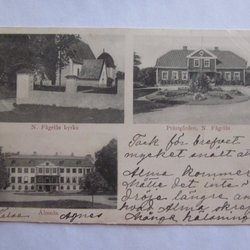 N. Fågelås kyrka
Prästgården, N. Fågelås
Almnäs
Tack för brefvet
mycket snällt af
Alma kommer
skulle det inte
dröja längre an
nog Alma skref
många hälsning
Agnes